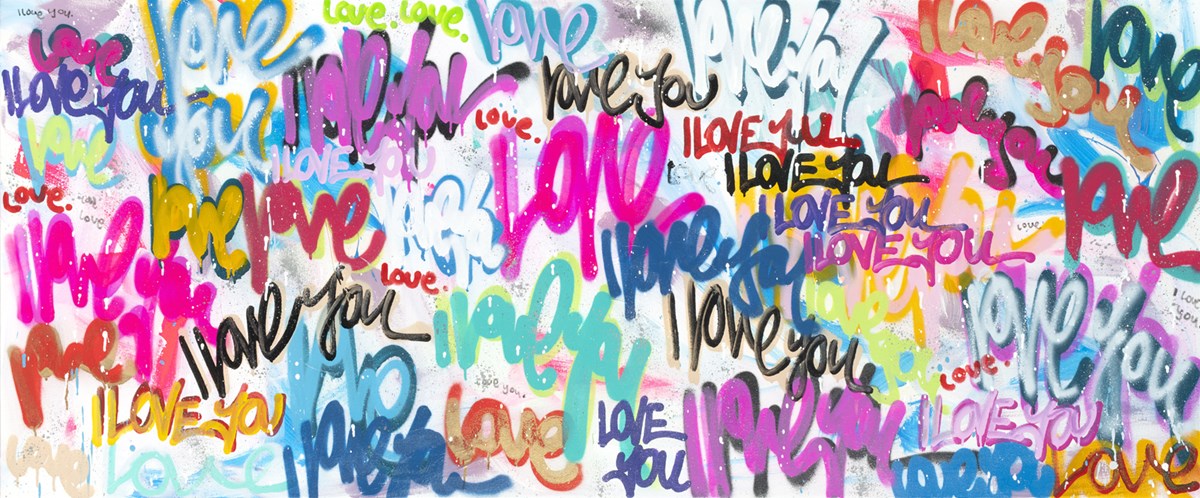 I love you.
love. love.
love
love you
love
love you
love
I love you
I love you
I love you
love you
love
love.
I LOVE you
I love you
love
I LOVE YOU
I LOVE you
love.
love
love
love
love
love
I LOVE you
I love you
I LOVE YOU
I love you
love.
love.
I love you
I love you
I love you
I love you
I love you
love
love.
I love you.
I LOVE YOU
love
LOVE
YOU
I love you
I LOVE YOU
love
love
I love you
love you
love